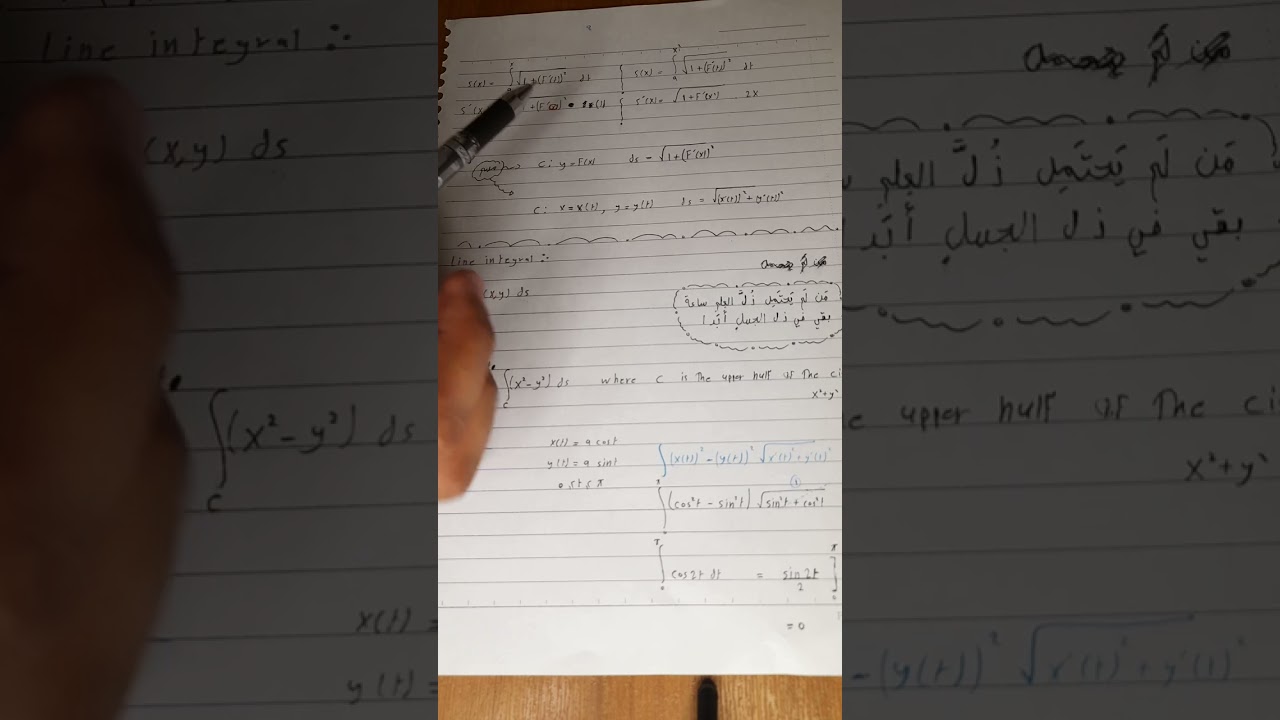 S(x) = ∫ √1+(F'(t))² dt
S(x) = ∫ √1+(F'(t))² dt
S'(x) = √1+F'(x²) . 2x
C: y = F(x) ds = √1+(F'(x))²
C: x = x(t), y = y(t) ds = √(x'(t))² + y'(t))²
Line integral :-
(x,y) ds
مَن لَم يَحتَمِل ذُلَّ العِلم ساعة
بقي في ذل الجهل أبَدا
∫c (x² - y²) ds where C is The upper half of The ci
x²+y²
x(t) = a cos t
y(t) = a sin t
0 ≤ t ≤ π
∫ (x(t))² - (y(t))² √x'(t)² + y'(t)²
∫ (cos²t - sin²t) √sin²t + cos²t
∫ cos 2t dt = sin 2t / 2 ]
= 0